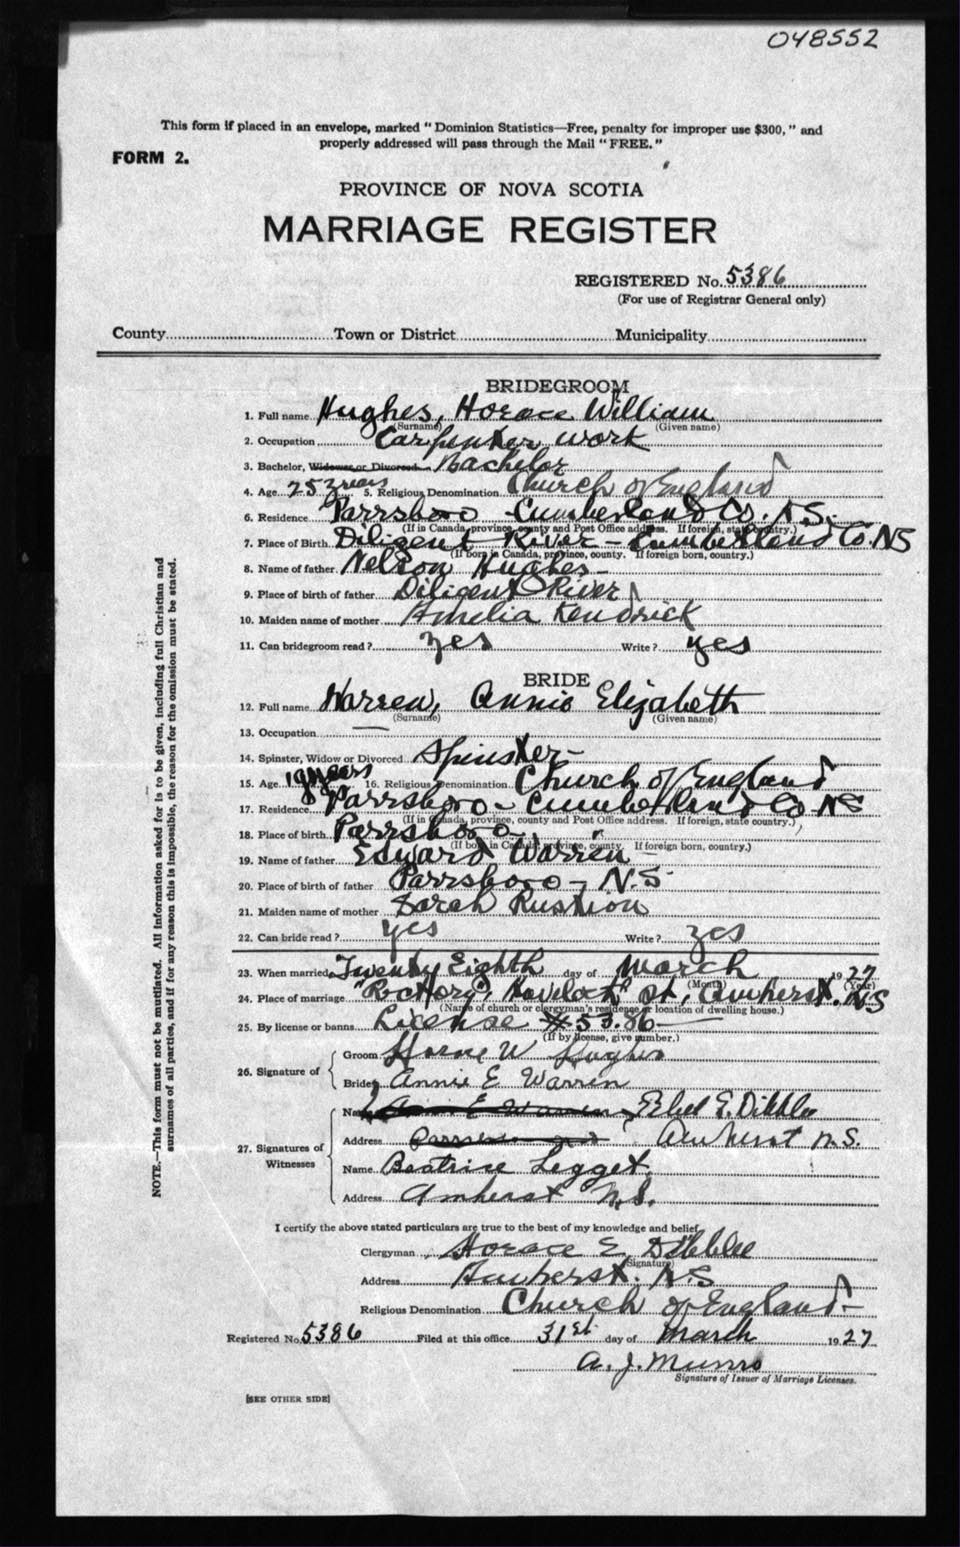 048552
This form if placed in an envelope, marked "Dominion Statistics—Free, penalty for improper use $300," and
properly addressed will pass through the Mail "FREE."
FORM 2.
PROVINCE OF NOVA SCOTIA
MARRIAGE REGISTER
REGISTERED No. 5386
(For use of Registrar General only)
County Town or District Municipality
BRIDEGROOM
1. Full name Hughes, Horace William
(Surname) (Given name)
2. Occupation Carpenter work
3. Bachelor, Widower or Divorced Bachelor
4. Age 25 years 5. Religious Denomination Church of England
6. Residence Parrsboro - Cumberland Co. N.S.
(If in Canada, province, county and Post Office address. If foreign, state country.)
7. Place of Birth Diligent River - Cumberland Co. NS
(If born in Canada, province, county. If foreign born, country.)
8. Name of father Nelson Hughes -
9. Place of birth of father Diligent River
10. Maiden name of mother Amelia Kendrick
11. Can bridegroom read? yes Write? yes
BRIDE
12. Full name Warren, Annie Elizabeth
(Surname) (Given name)
13. Occupation —
14. Spinster, Widow or Divorced Spinster -
15. Age 19 years 16. Religious Denomination Church of England
17. Residence Parrsboro - Cumberland Co NS
(If in Canada, province, county and Post Office address. If foreign, state country.)
18. Place of birth Parrsboro - "
(If born in Canada, province, county. If foreign born, country.)
19. Name of father Edward Warren -
20. Place of birth of father Parrsboro - N.S
21. Maiden name of mother Sarah
22. Can bride read? yes Write? yes
23. When married Twenty Eighth day of March 1927
(Month) (Year)
24. Place of marriage "Rectory", Havelock St, Amherst. NS
(Name of church or clergyman's residence or location of dwelling house.)
25. By license or banns License #5386 —
(If by license, give number.)
26. Signature of
Groom Horace W Hughes
Bride Annie E Warren
27. Signatures of Witnesses
Name Annie E Warren Ethel E. Dibblee
Address Parrsboro Amherst N.S.
Name Beatrice Legget.
Address Amherst N.S.
I certify the above stated particulars are true to the best of my knowledge and belief
Clergyman Horace E. Dibblee
(Signature)
Address Amherst. N.S
Religious Denomination Church of England -
Registered No. 5386 Filed at this office 31st day of March 1927
A. J. Munro
Signature of Issuer of Marriage Licenses.
[SEE OTHER SIDE]
NOTE.—This form must not be mutilated. All information asked for is to be given, including full Christian and
surnames of all parties, and if for any reason this is impossible, the reason for the omission must be stated.